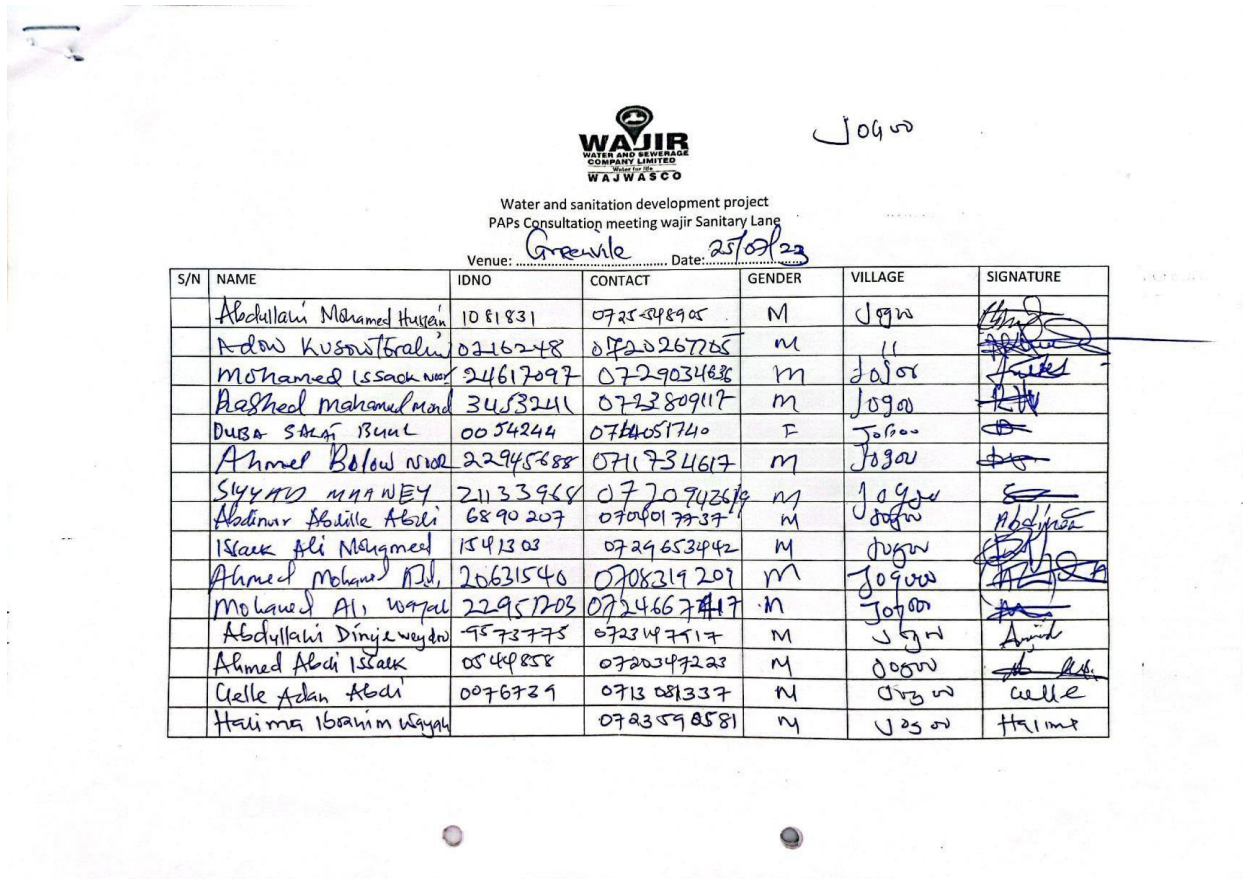 Jogoo
WAJIR
WATER AND SEWERAGE
COMPANY LIMITED
Water for life
WAJWASCO
Water and sanitation development project
PAPs Consultation meeting wajir Sanitary Lane
Venue: Greenvile Date: 25/07/23
S/N NAME IDNO CONTACT GENDER VILLAGE SIGNATURE
Abdullahi Mohamed Hussein 1081831 M Jogoo
Adow Kusow Ibrahim 0216248 0720267705 M 11
Mohamed Issack Noor 24617097 0729034636 M
Rashed Mahamed 3453241 0723809117 M Jogoo
DUBA SALAT 0054244 F
Ahmed Bolow NOOR 22945688 0711734617 M Jogoo
SIYYAD MAAWEY 21133968 M Jogoo
Abdinur Abdille Abdi 6890207 M Jogoo Abdinoor
Issack Ali Mohgmed 1541303 0729653442 M Jogoo
Ahmed Mohamed 20631540 0708319209 M Jogooo
Mohamed Ali 22951203 M Jogoo
Abdullahi 9573775 M Jogoo
Ahmed Abdi Issack 0544858 0720347223 M Jogoo
Gelle Adan Abdi 0076739 0713081337 M Jogoo Gelle
Halima Ibrahim 0723598581 M Jogoo Halima